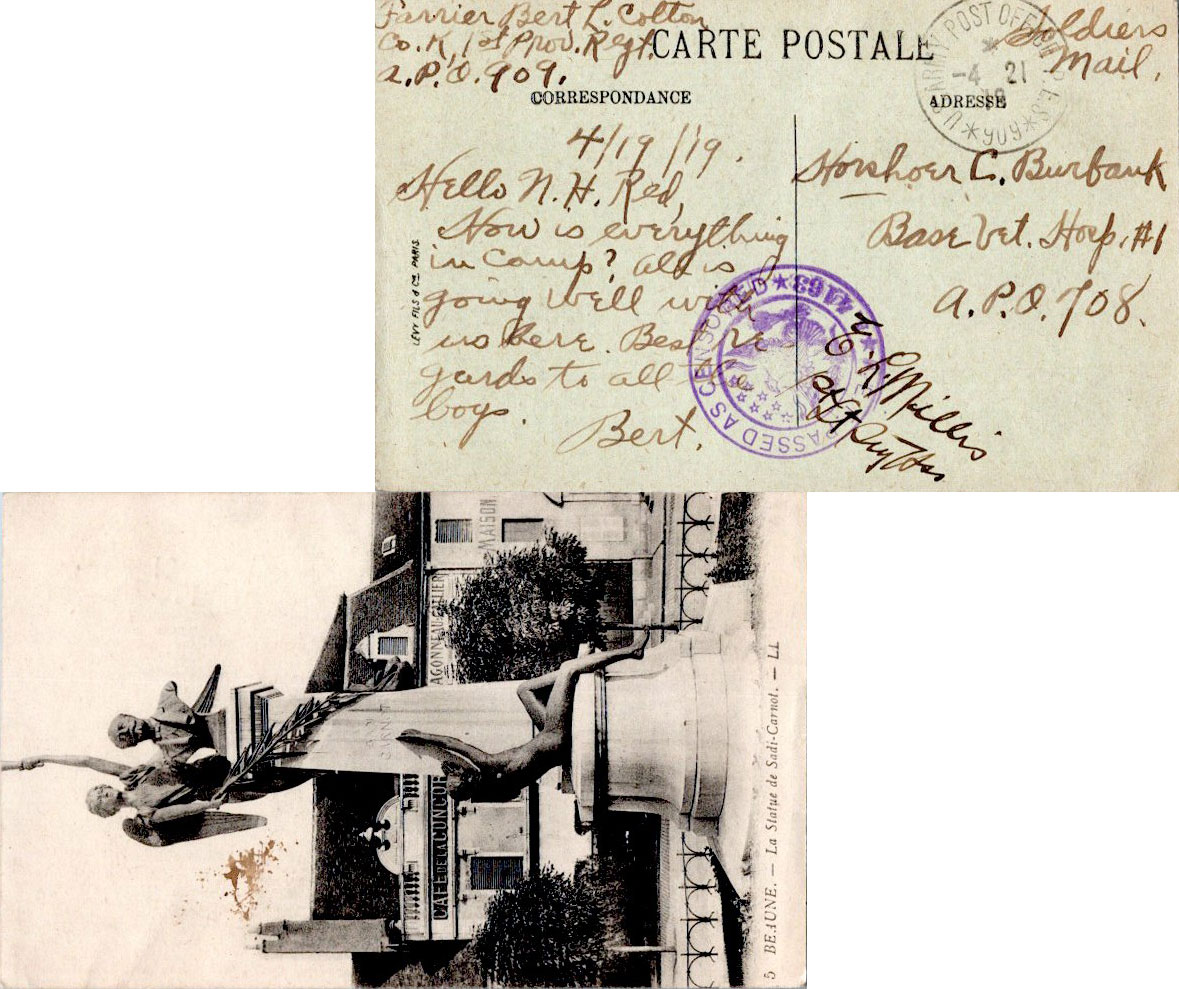 Farrier Bert L. Colton
Co. K, 1st Prov. Regt.
A.P.O. 909.
CARTE POSTALE
Soldiers
Mail.
U.S. ARMY POST OFFICE
-4 21
19
*909*
CORRESPONDANCE
ADRESSE
4/19/19.
Hello N. H. Red,
How is everything
in Camp? All is
going well with
us here. Best re
gards to all the
boys.
Bert.
Horshoer C. Burbank
Base Vet. Hosp. #1
A.P.O. 708.
LEVY FILS & Cie PARIS
PASSED AS CENSORED
E. L. Millis
MAISON
CAFE DE LA CONCOR
CARNOT
5 BEAUNE. — La Statue de Sadi-Carnot. — LL